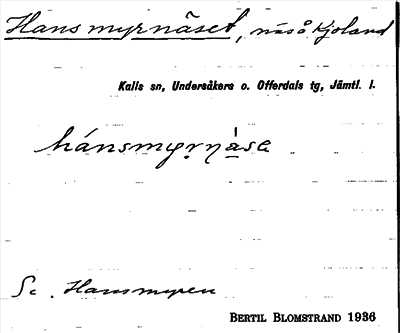 Hansmyrnäset, näs å Kjoland
Kalls sn, Undersåkers o. Offerdals tg, Jämtl. l.
hánsmyṛṇà̱sɐ
Se. Hansmyren
BERTIL BLOMSTRAND 1936